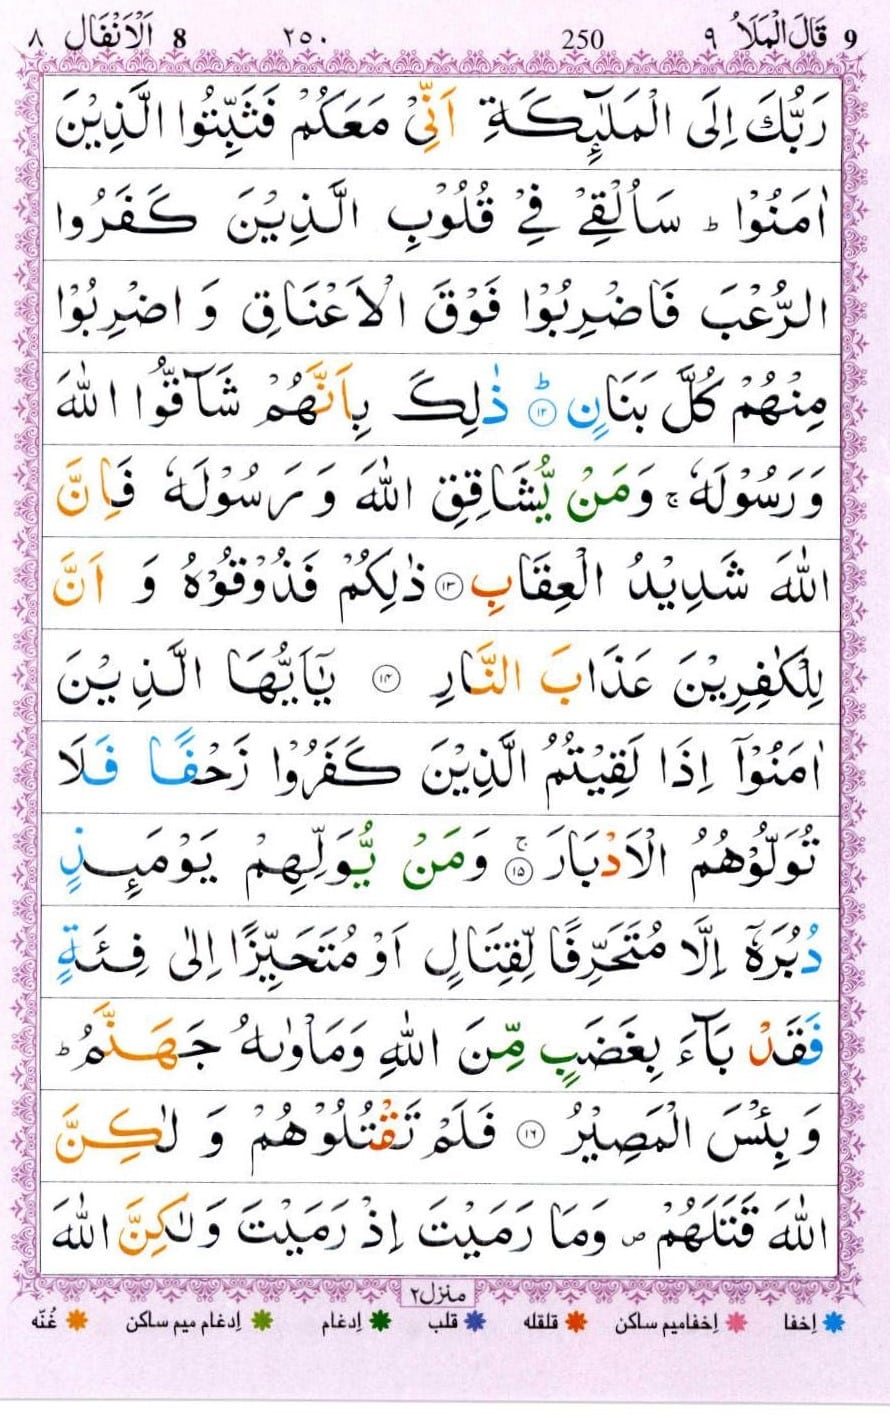 9 قَالَ الْمَلَاُ ٩ 250 ٢٥٠ 8 اَلْاَنْفَال ٨
رَبُّكَ اِلَى الْمَلٰٓئِكَةِ اَنِّیْ مَعَكُمْ فَثَبِّتُوا الَّذِیْنَ
اٰمَنُوْا ؕ سَاُلْقِیْ فِیْ قُلُوْبِ الَّذِیْنَ كَفَرُوا
الرُّعْبَ فَاضْرِبُوْا فَوْقَ الْاَعْنَاقِ وَ اضْرِبُوْا
مِنْهُمْ كُلَّ بَنَانٍ ؕ ۱۲ ذٰلِكَ بِاَنَّهُمْ شَآقُّوا اللّٰهَ
وَ رَسُوْلَهٗ ۚ وَ مَنْ یُّشَاقِقِ اللّٰهَ وَ رَسُوْلَهٗ فَاِنَّ
اللّٰهَ شَدِیْدُ الْعِقَابِ ۱۳ ذٰلِكُمْ فَذُوْقُوْهُ وَ اَنَّ
لِلْكٰفِرِیْنَ عَذَابَ النَّارِ ۱۴ یٰۤاَیُّهَا الَّذِیْنَ
اٰمَنُوْۤا اِذَا لَقِیْتُمُ الَّذِیْنَ كَفَرُوْا زَحْفًا فَلَا
تُوَلُّوْهُمُ الْاَدْبَارَ ۚ ۱۵ وَ مَنْ یُّوَلِّهِمْ یَوْمَىِٕذٍ
دُبُرَهٗۤ اِلَّا مُتَحَرِّفًا لِّقِتَالٍ اَوْ مُتَحَیِّزًا اِلٰى فِئَةٍ
فَقَدْ بَآءَ بِغَضَبٍ مِّنَ اللّٰهِ وَ مَاْوٰىهُ جَهَنَّمُ ؕ
وَ بِئْسَ الْمَصِیْرُ ۱۶ فَلَمْ تَقْتُلُوْهُمْ وَ لٰكِنَّ
اللّٰهَ قَتَلَهُمْ ۪ وَ مَا رَمَیْتَ اِذْ رَمَیْتَ وَ لٰكِنَّ اللّٰهَ
منزل ٢
اِخفا اِخفامیم ساکن قلقله قلب اِدغام اِدغام میم ساکن غُنّه